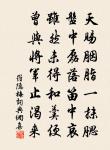 天賜胭脂一抹腮
盤中磊落笛中哀
雖然未得和羹便
曾與將軍止渴來
羅隱梅